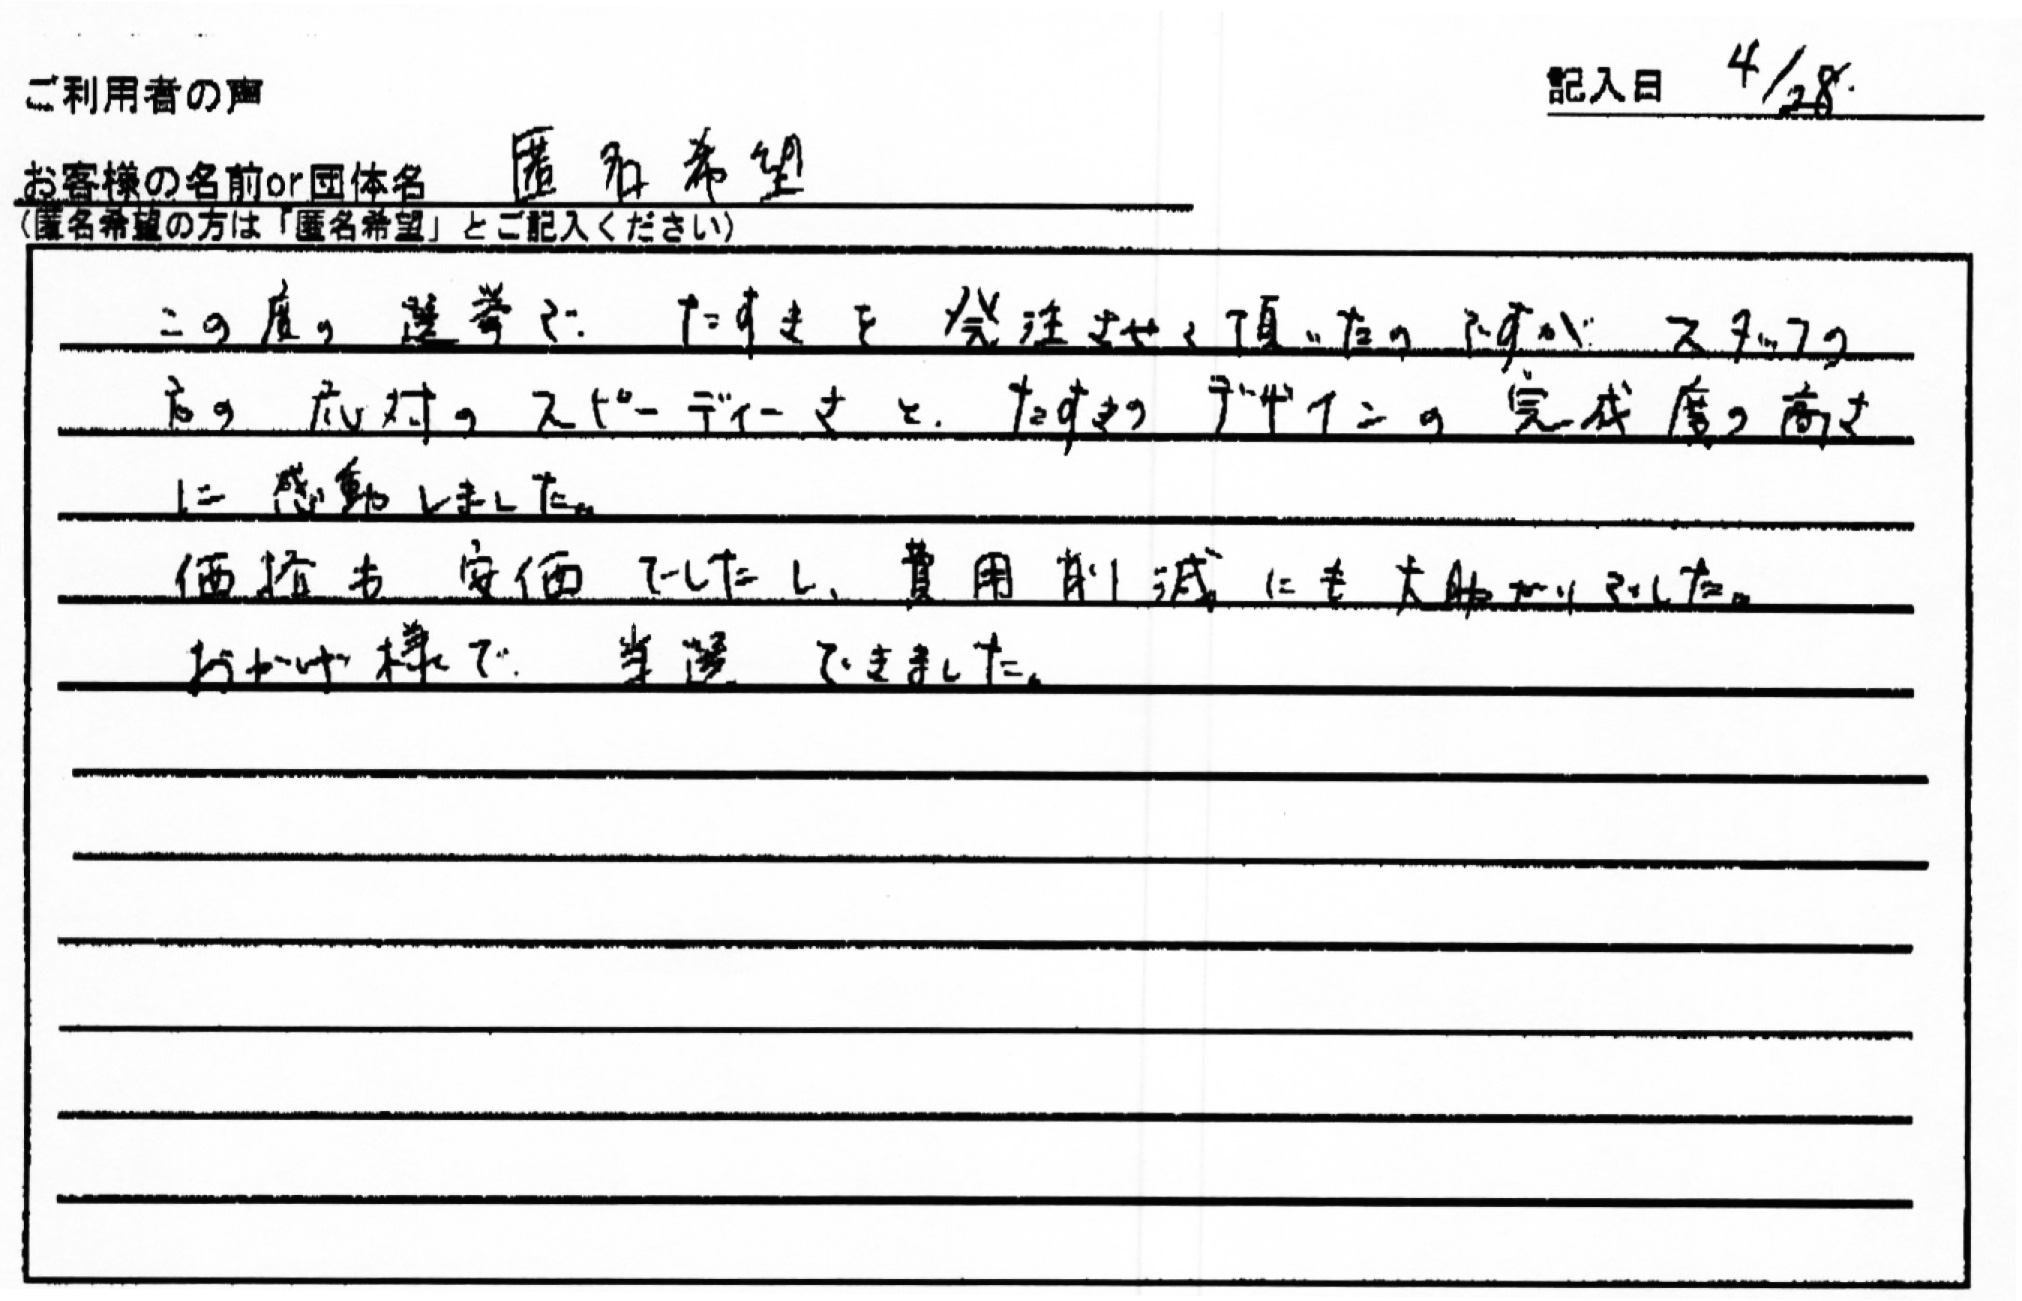 ご利用者の声
記入日 4/28.
お客様の名前or団体名 匿名希望
(匿名希望の方は「匿名希望」とご記入ください)
この度の選挙で、たすきを発注させて頂いたのですが、スタッフの
方の応対のスピーディーさと、たすきのデザインの完成度の高さ
に感動しました。
価格も安価でしたし、費用削減にも大助かりでした。
おかげ様で、当選できました。